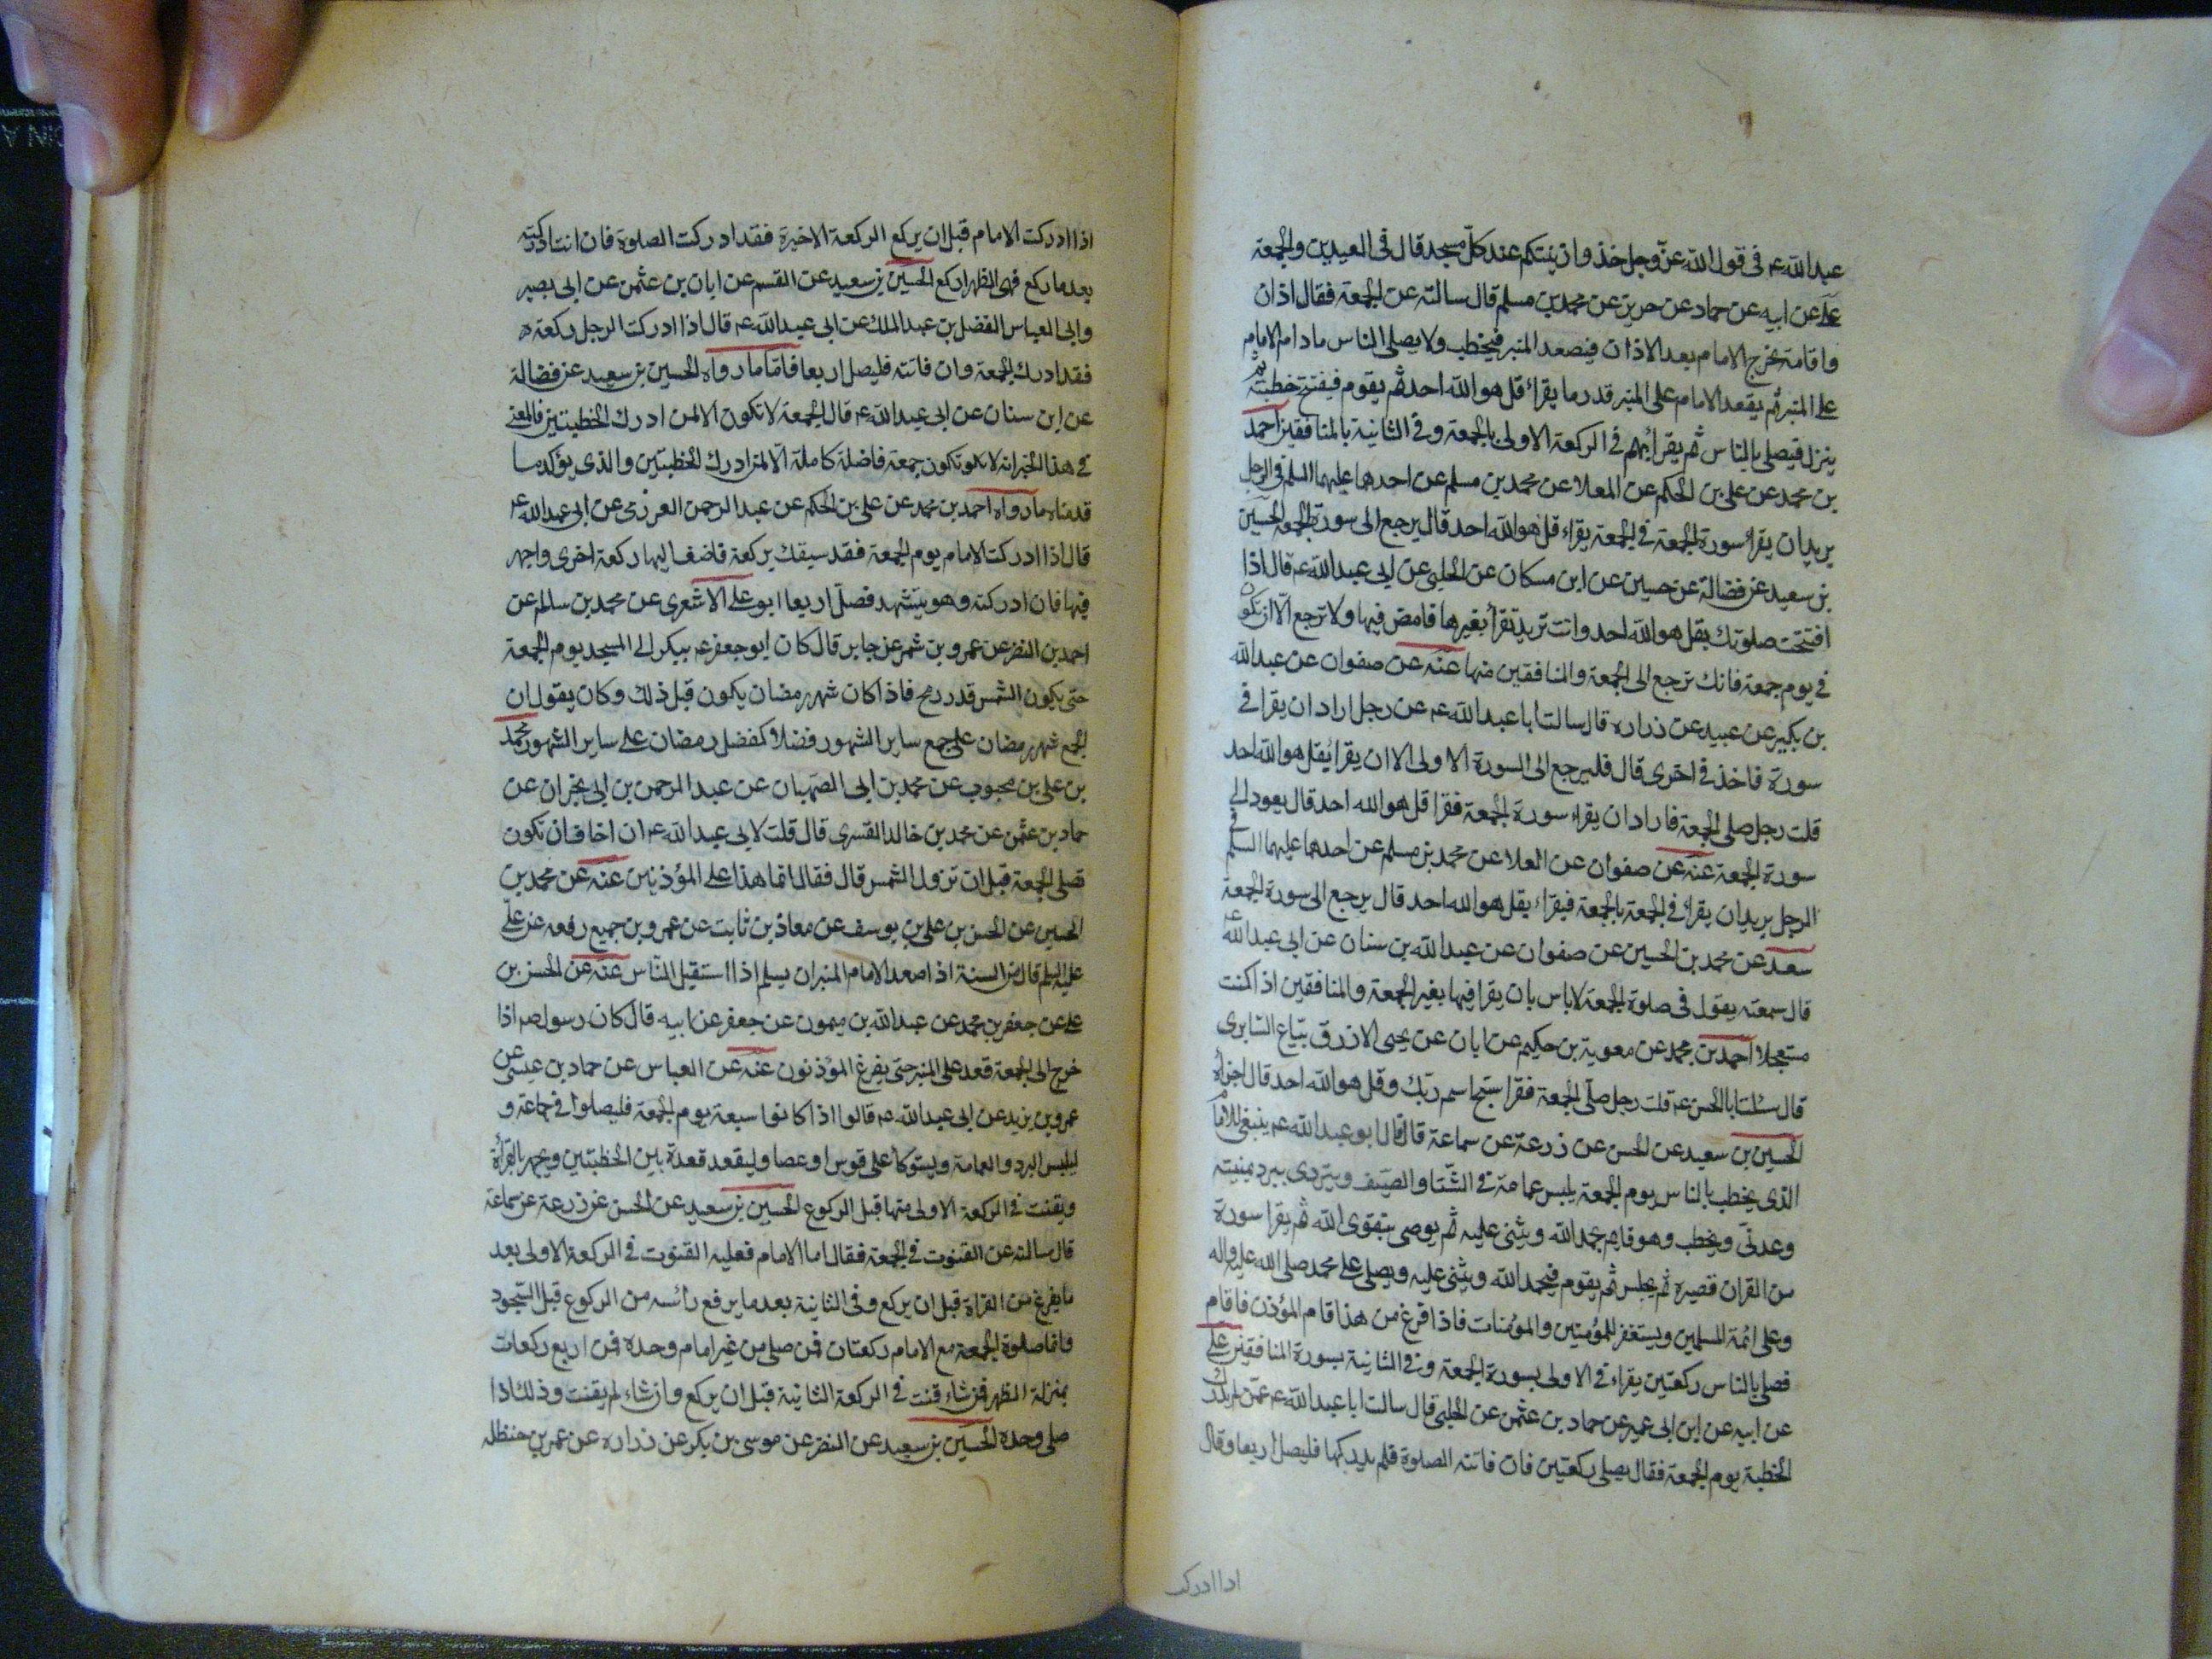 عبد الله ع‍ فى قول الله عزّ وجل خذوا زينتكم عند كلّ مسجد قال فى العيدين والجمعة
على عن ابيه عن حماد عن حريز عن محمد بن مسلم قال سالته عن الجمعة فقال اذان
واقامة يخرج الامام بعد الاذان فيصعد المنبر فيخطب ولا يصلى الناس مادام الامام
على المنبر ثم يقعد الامام على المنبر قدر ما يقراء قل هو الله احد ثم يقوم فيفتتح خطبته ثم
ينزل فيصلى بالناس ثم يقرأ بهم فى الركعة الاولى بالجمعة وفى الثانية بالمنافقين احمد
بن محمد عن على بن الحكم عن العلا عن محمد بن مسلم عن احدهما عليهما السلم فى الرجل
يريد ان يقرأ سورة الجمعة فى الجمعة يقراء قل هو الله احد قال يرجع الى سورة الجمعة الحسين
بن سعيد عن فضالة عن حسين عن ابن مسكان عن الحلبى عن ابى عبد الله ع‍ قال اذا
افتتحت صلوتك بقل هو الله احد وانت تريد تقرأ بغيرها فامض فيها ولا ترجع الّا ان تكون
فى يوم جمعة فانك ترجع الى الجمعة والمنافقين منها عنه عن صفوان عن عبد الله
بن بكير عن عبيد عن زراره قال سالت ابا عبد الله ع‍ عن رجل اراد ان يقرا فى
سورة فاخذ فى اخرى قال فليرجع الى السورة الاولى الا ان يقرا بقل هو الله احد
قلت رجل صلى الجمعة فاراد ان يقراء سورة الجمعة فقرا قل هو الله احد قال يعود الى
سورة الجمعة عنه عن صفوان عن العلا عن محمد بن مسلم عن احدهما عليهما السلم فى
الرجل يريد ان يقرأ فى الجمعة بالجمعة فيقراء بقل هو الله احد قال يرجع الى سورة الجمعة
سعد عن محمد بن الحسين عن صفوان عن عبد الله بن سنان عن ابى عبد الله ع‍
قال سمعته يقول فى صلوة الجمعة لا باس بان يقرا فيها بغير الجمعة والمنافقين اذا كنت
مستعجلا احمد بن محمد عن معوية بن حكيم عن ابان عن يحيى الازرق بيّاع السابرى
قال سئلت ابا الحسن ع‍ قلت رجل صلّى الجمعة فقرا سبح اسم ربّك وقل هو الله احد قال اجزأه
الحسين بن سعيد عن الحسن عن زرعة عن سماعة قال قال ابو عبد الله ع‍ ينبغى للامام
الذى يخطب بالناس يوم الجمعة يلبس عمامة فى الشتا والصيف ويتردى ببرد يمنية
وعدنّى ويخطب وهو قايم يحمد الله ويثنى عليه ثم يوصى بتقوى الله ثم يقرا سورة
من القران قصيرة ثم يجلس ثم يقوم فيحمد الله ويثنى عليه ويصلى على محمد صلى الله عليه واله
وعلى ائمة المسلمين ويستغفر للمؤمنين والمؤمنات فاذا فرغ من هذا قام المؤذن فاقام
فصلى بالناس ركعتين يقراء فى الاولى بسورة الجمعة وفى الثانية بسورة المنافقين على
عن ابيه عن ابن ابى عمير عن حماد بن عثمن عن الحلبى قال سالت ابا عبد الله ع‍ عمّن لم يدرك
الخطبة يوم الجمعة فقال يصلى ركعتين فان فاتته الصلوة فلم يدركها فليصل اربعا وقال
اذا ادركت
اذا ادركت الامام قبل ان يركع الركعة الاخيرة فقد ادركت الصلوة فان انت ادركته
بعد ما ركع فهى الظهر اربع الحسين بن سعيد عن القسم عن ابان بن عثمن عن ابى بصير
وابى العباس الفضل بن عبد الملك عن ابى عبد الله ع‍ قال اذا ادركت الرجل ركعة
فقد ادرك الجمعة وان فاتته فليصل اربعا فامّا ما رواه الحسين بن سعيد عن فضالة
عن ابن سنان عن ابى عبد الله ع‍ قال الجمعة لا تكون الا لمن ادرك الخطبتين فالمعنى
فى هذا الخبر انه لا تكون جمعة فاضلة كاملة الّا لمن ادرك الخطبتين والذى يؤكد ما
قدمناه ما رواه احمد بن محمد عن على بن الحكم عن عبد الرحمن العرزمى عن ابى عبد الله ع‍
قال اذا ادركت الامام يوم الجمعة فقد سبقك بركعة فاضف اليها ركعة اخرى واجهر
فيها فان ادركته وهو يتشهد فصلّ اربعا ابو على الاشعرى عن محمد بن سالم عن
احمد بن النضر عن عمرو بن شمر عن جابر قال كان ابو جعفر ع‍ يبكر الى المسجد يوم الجمعة
حتى يكون الشمس قدر رمح فاذا كان شهر رمضان يكون قبل ذلك وكان يقول ان
لجمع شهر رمضان على جمع ساير الشهور فضلا كفضل رمضان على ساير الشهور محمد
بن على بن محبوب عن محمد بن ابى الصهبان عن عبد الرحمن بن ابى نجران عن
حماد بن عثمن عن محمد بن خالد القسرى قال قلت لابى عبد الله ع‍ ان اخاف ان نكون
نصلى الجمعة قبل ان تزول الشمس قال فقال انما هذا على المؤذنين عنه عن محمد بن
الحسين عن الحسن بن على بن يوسف عن معاذ بن ثابت عن عمرو بن جميع رفعه عن علّى
عليه السلم قال من السنة اذا صعد الامام المنبر ان يسلم اذا استقبل الناس عنه عن الحسن بن
على عن جعفر بن محمد عن عبد الله بن ميمون عن جعفر عن ابيه قال كان رسول ص‍ اذا
خرج الى الجمعة قعد على المنبر حتى يفرغ المؤذنون عنه عن العباس عن حماد بن عيسى عن
عمرو بن يزيد عن ابى عبد الله ع‍ قالوا اذا كانوا سبعة يوم الجمعة فليصلوا فى جماعة و
ليلبس البرد والعمامة ويتوكأ على قوس او عصا وليقعد قعدة بين الخطبتين ويجهر بالقرأة
ويقنت فى الركعة الاولى منها قبل الركوع الحسين بن سعيد عن الحسن عن زرعة عن سماعة
قال سالته عن القنوت فى الجمعة فقال اما الامام فعليه القنوت فى الركعة الاولى بعد
ما يفرغ من القراة قبل ان يركع وفى الثانية بعد ما يرفع رأسه من الركوع قبل السّجود
وانما صلوة الجمعة مع الامام ركعتان فمن صلى من غير امام وحده فمن اربع ركعات
بمنزلة الظهر فمن شاء قنت فى الركعة الثانية قبل ان يركع وان شاء لم يقنت وذلك اذا
صلى وحده الحسين بن سعيد عن النضر عن موسى بن بكر عن زراره عن عمر بن حنظله